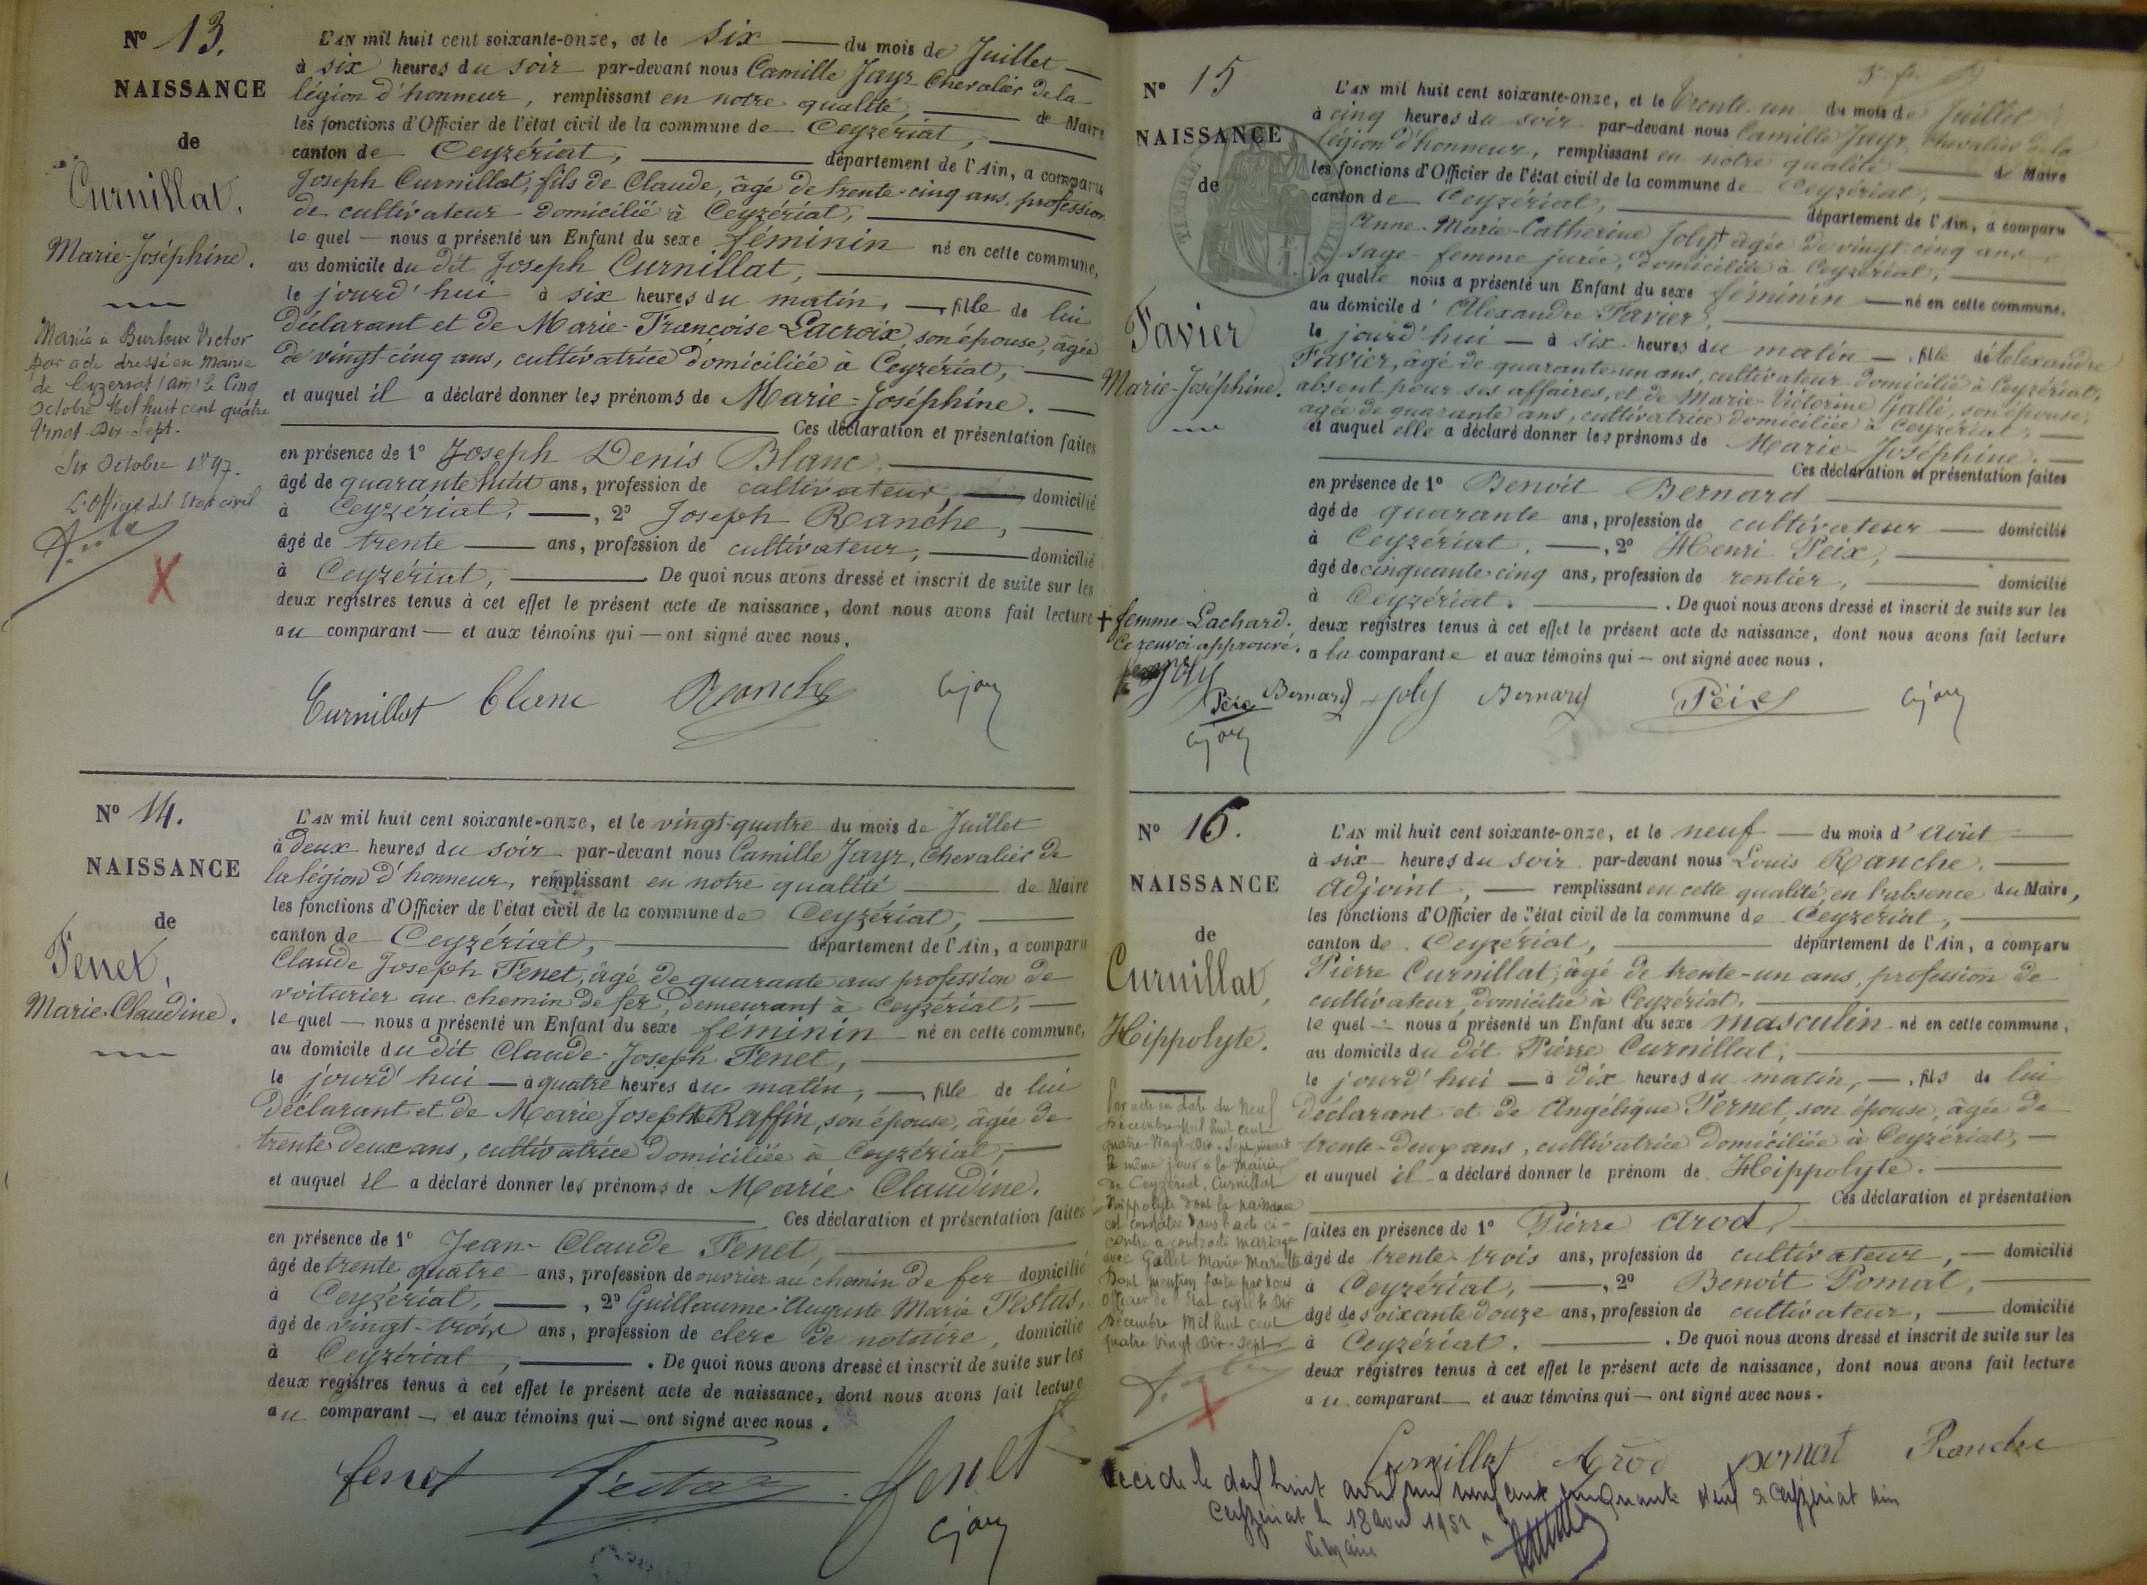 N° 13.
NAISSANCE
de
Curnillat,
Marie-Joséphine.
Mariée à Burtoux Victor
par acte dressé en Mairie
de Ceyzériat (Ain) le cinq
Octobre Mil huit cent quatre
Vingt-Dix-Sept.
Six Octobre 1897.
L'Officier de l'Etat civil
L'AN mil huit cent soixante-onze, et le six du mois de Juillet
à six heures du soir par-devant nous Camille Jayr Chevalier de la
légion d'honneur, remplissant en notre qualité, de Maire
les fonctions d'Officier de l'état civil de la commune de Ceyzériat,
canton de Ceyzériat, département de l'Ain, a comparu
Joseph Curnillat, fils de Claude, âgé de trente-cinq ans, profession
de cultivateur domicilié à Ceyzériat,
le quel — nous a présenté un Enfant du sexe féminin né en cette commune,
au domicile du dit Joseph Curnillat,
le jourd'hui à six heures du matin, — , fille de lui
déclarant et de Marie-Françoise Lacroix, son épouse, âgée
de vingt-cinq ans, cultivatrice domiciliée à Ceyzériat,
et auquel il a déclaré donner les prénoms de Marie-Joséphine.
Ces déclaration et présentation faites
en présence de 1° Joseph Denis Blanc,
âgé de quarante huit ans, profession de cultivateur, domicilié
à Ceyzériat, — , 2° Joseph Ranche,
âgé de trente — ans, profession de cultivateur, domicilié
à Ceyzériat, . De quoi nous avons dressé et inscrit de suite sur les
deux registres tenus à cet effet le présent acte de naissance, dont nous avons fait lecture
au comparant — et aux témoins qui — ont signé avec nous.
Curnillat Blanc Ranche C. Jayr
N° 14.
NAISSANCE
de
Fenet,
Marie-Claudine.
L'AN mil huit cent soixante-onze, et le vingt-quatre du mois de Juillet
à deux heures du soir par-devant nous Camille Jayr, Chevalier de
la légion d'honneur, remplissant en notre qualité de Maire
les fonctions d'Officier de l'état civil de la commune de Ceyzériat,
canton de Ceyzériat, département de l'Ain, a comparu
Claude Joseph Fenet, âgé de quarante ans profession de
voiturier au chemin de fer, demeurant à Ceyzériat,
le quel — nous a présenté un Enfant du sexe féminin né en cette commune,
au domicile du dit Claude Joseph Fenet,
le jourd'hui — à quatre heures du matin, — , fille de lui
déclarant et de Marie Joseph Raffin, son épouse, âgée de
trente deux ans, cultivatrice domiciliée à Ceyzériat,
et auquel il a déclaré donner les prénoms de Marie Claudine.
Ces déclaration et présentation faites
en présence de 1° Jean-Claude Fenet,
âgé de trente quatre ans, profession de ouvrier au chemin de fer domicilié
à Ceyzériat, — , 2° Guillaume Auguste Marie Festas,
âgé de vingt-trois ans, profession de clerc de notaire, domicilié
à Ceyzériat, . De quoi nous avons dressé et inscrit de suite sur les
deux registres tenus à cet effet le présent acte de naissance, dont nous avons fait lecture
au comparant — et aux témoins qui — ont signé avec nous.
fenet Festas fenet
C. Jayr
N° 15
NAISSANCE
de
Favier
Marie-Joséphine.
L'AN mil huit cent soixante-onze, et le trente-un du mois de Juillet
à cinq heures du soir par-devant nous Camille Jayr, Chevalier de la
légion d'honneur, remplissant en notre qualité de Maire
les fonctions d'Officier de l'état civil de la commune de Ceyzériat,
canton de Ceyzériat, département de l'Ain, a comparu
Anne-Marie-Catherine Joly + âgée de vingt cinq ans
sage-femme jurée, domiciliée à Ceyzériat,
la quelle nous a présenté un Enfant du sexe féminin — né en cette commune,
au domicile d'Alexandre Favier,
le jourd'hui — à six heures du matin — , fille d'Alexandre
Favier, âgé de quarante un ans, cultivateur domicilié à Ceyzériat,
absent pour ses affaires, et de Marie-Victorine Gallé, son épouse,
âgée de quarante ans, cultivatrice domiciliée à Ceyzériat,
et auquel elle a déclaré donner les prénoms de Marie Joséphine.
Ces déclaration et présentation faites
en présence de 1° Benoit Bernard
âgé de quarante ans, profession de cultivateur — domicilié
à Ceyzériat, — , 2° Henri Peix,
âgé de cinquante cinq ans, profession de rentier, domicilié
à Ceyzériat. . De quoi nous avons dressé et inscrit de suite sur les
+ femme Lachard.
Ce renvoi approuvé.
deux registres tenus à cet effet le présent acte de naissance, dont nous avons fait lecture
a la comparante et aux témoins qui — ont signé avec nous.
joly
Peix Bernard joly Bernard Péix C. Jayr
C. Jayr
N° 16.
NAISSANCE
de
Curnillat,
Hippolyte.
Par acte en date du Neuf
Décembre Mil huit cent
quatre-Vingt-Dix-Sept, inscrit
le même jour à la Mairie
de Ceyzériat, Curnillat
Hippolyte dont la naissance
est constatée dans l'acte ci-
contre a contracté mariage
avec Gallet Marie Mariette
Dont mention faite par nous
Officier de l'Etat civil le Dix
Décembre Mil huit cent
quatre Vingt Dix-Sept
L'AN mil huit cent soixante-onze, et le neuf — du mois d'Août
à six heures du soir par-devant nous Louis Ranche,
Adjoint, — remplissant en cette qualité, en l'absence du Maire,
les fonctions d'Officier de l'état civil de la commune de Ceyzériat,
canton de Ceyzériat, département de l'Ain, a comparu
Pierre Curnillat, âgé de trente-un ans, profession de
cultivateur, domicilié à Ceyzériat,
le quel — nous a présenté un Enfant du sexe masculin né en cette commune,
au domicile du dit Pierre Curnillat,
le jourd'hui — à dix heures du matin, — , fils de lui
déclarant et de Angélique Pernet, son épouse, âgée de
trente-deux ans, cultivatrice domiciliée à Ceyzériat, —
et auquel il a déclaré donner le prénom de Hippolyte.
Ces déclaration et présentation
faites en présence de 1° Pierre Arod,
âgé de trente trois ans, profession de cultivateur, — domicilié
à Ceyzériat, — , 2° Benoit Pomat,
âgé de soixante douze ans, profession de cultivateur, — domicilié
à Ceyzériat. . De quoi nous avons dressé et inscrit de suite sur les
deux registres tenus à cet effet le présent acte de naissance, dont nous avons fait lecture
au comparant — et aux témoins qui — ont signé avec nous.
Curnillat Arod pomat Ranche
Décidé le dix huit avril mil neuf cent cinquante deux à Ceyzériat Ain
Ceyzériat le 18 avril 1952
Le Maire